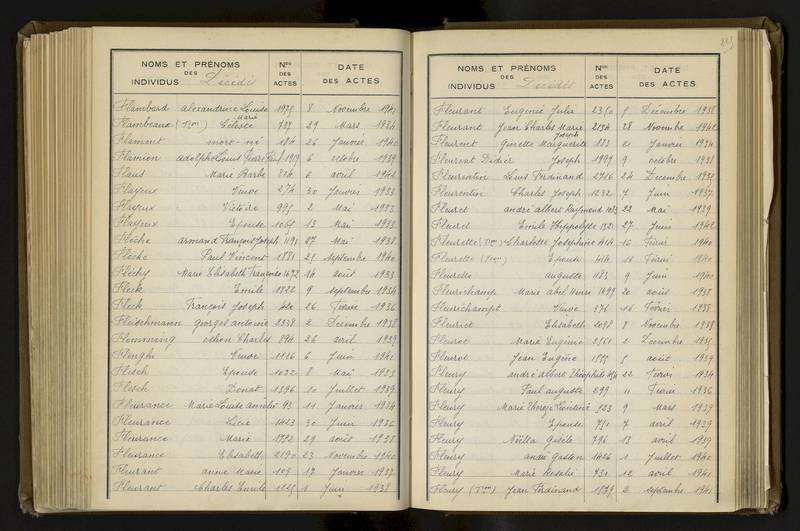 NOMS ET PRÉNOMS Nos DATE
DES DES
INDIVIDUS Décédés ACTES DES ACTES
Flambard alexandrine Louise 1975 8 Novembre 1941
Marie
Flambeaux (Tion) Céleste 737 29 Mars 1934
Flamont mort-né 184 26 Janvier 1940
Flamion adolphe Louis Pierre Paul 1919 6 octobre 1939
Flaus Marie Barbe 804 6 avril 1942
Flayeux Veuve 274 30 Janvier 1933
Flayeux Victoire 995 2 Mai 1933
Flayeux Epouse 1055 13 Mai 1933
Flèche armand François Joseph 1191 27 Mai 1938
Flèche Paul Vincent 1881 25 septembre 1940
Fléchy Marie Elisabeth Françoise 1672 14 août 1935
Fleck Emile 1822 9 septembre 1934
Fleck François Joseph 26 Février 1936
Fleischmann georges antoine 2338 2 Décembre 1938
Flemming othon Charles 894 26 avril 1939
Flenghi Veuve 1116 6 Juin 1941
Flesch Epouse 1032 8 Mai 1933
Flesch Donat 1396 10 Juillet 1939
Fleurance Marie Louise amélie 93 11 Janvier 1934
Fleurance 1423 30 Juin 1936
Fleurance Marie 1772 29 août 1938
Fleurance Elisabeth 2190 23 Novembre 1940
Fleurant anne Marie 109 17 Janvier 1937
Fleurant Charles Emile 1125 1 Juin 1938
NOMS ET PRÉNOMS Nos DATE
DES DES
INDIVIDUS Décédés ACTES DES ACTES
Fleurant Eugénie Julie 2350 9 Décembre 1938
Fleurant Jean Charles Marie 2134 28 Novembre 1942
Joseph
Fleurent Ginette Marguerite 133 21 Janvier 1934
Fleurent Didier Joseph 1999 9 octobre 1938
Fleurentin Louis Ferdinand 2716 24 Décembre 1935
Fleurentin Charles Joseph 1232 7 Juin 1937
Fleuret andré albert Raymond 1083 22 Mai 1939
Fleuret Emile Hippolyte 1321 27 Juin 1942
Fleurette (Tion) Charlotte Joséphine 414 16 Février 1940
Fleurette (Tion) Epouse 414 16 Février 1940
Fleurette auguste 1183 9 Juin 1940
Fleurichamp Marie abel Henri 1699 20 août 1938
Fleurichampt Veuve 376 16 Février 1938
Fleuriet Elisabeth 2098 8 Novembre 1938
Fleurot Marie Eugénie 2561 2 Décembre 1935
Fleurot Jean Eugène 1555 5 août 1939
Fleury andré albert Théophile 414 22 Février 1934
Fleury Paul auguste 299 11 Février 1936
Fleury Marie Thérèse Léontine 523 9 Mars 1939
Fleury Epouse 751 7 avril 1939
Fleury Noëlla Gisèle 796 13 avril 1939
Fleury andré gaston 1426 1 Juillet 1940
Fleury Marie Rosalie 731 12 avril 1941
Fleury (Tion) Jean Ferdinand 1579 2 septembre 1941